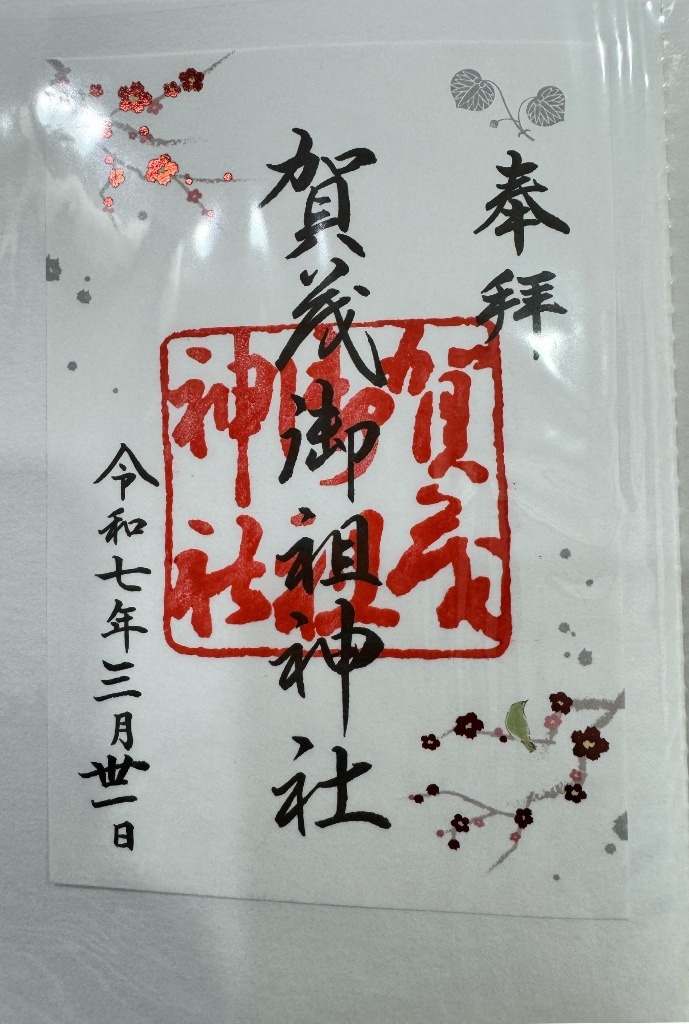 奉拝
賀茂御祖神社
賀茂
御祖
神社
令和七年三月丗一日